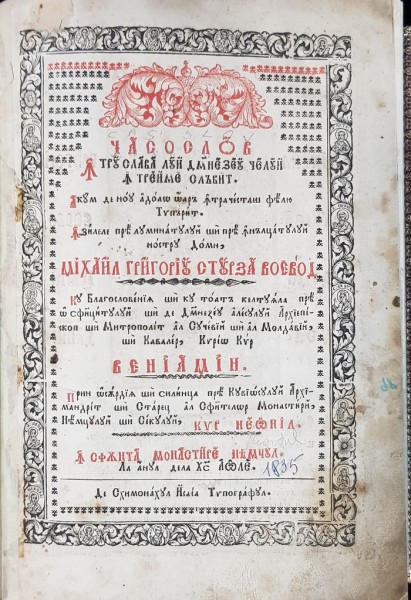 ЧАСОСЛОВ
Ꙟтру слава луй Дꙋмнезеꙋ челуй
ꙟ треиме слъвит.
Акум де ноу адоаѡ ѡаръ ꙟтрачесташ фелю
Типърит.
Ꙟзилеле пре луминатулуй ши пре ꙟнълцатулуй
ностру Домн,
МІХАИЛ ГРИГОРІꙊ СТꙊРЗА ВОЕВОД
Ку Благословенїа ши ку тоатъ келтуꙗла пре
ѡ сфинцитулуй ши де Дꙋмнезеꙋ алесулуй Архїепі-
скоп ши Митрополит ал Сучевїй ши ал Молдавїй,
ши Кавалер, Кѵрїѡ Кѵр
ВЕНІАМІН.
Прин ѡсѫрдїа ши силинца пре Кувїѡсулуй Архї-
мандрит ши Старец ал Сфинтелѡр Монастири,
Нѣмцулуй ши Секулуй, КѴР НЕѠНІЛ.
Ꙟ СФѪНТА МОНАСТИРЕ НѢМЦУЛ.
Ла анул дела Хс҃ АѠЛЕ. 1835
Де Схимонахул Исаїа Типографул.